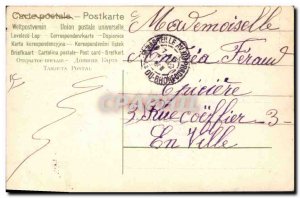 Carte postale. - Postkarte
Weltpostverein - Union postale universelle
Levelezö-Lap - Correspondenzkarte - Dopisnica
Karta korespondencyjna - Korespondenční lístek
Brevkaart - Cartolina postale - Post card - Brefkort
Открытое письмо - Дописна Карта
Tarjeta Postal
Mademoiselle
Féraud
Epicière
3 Rue Coëffier - 3 -
En Ville